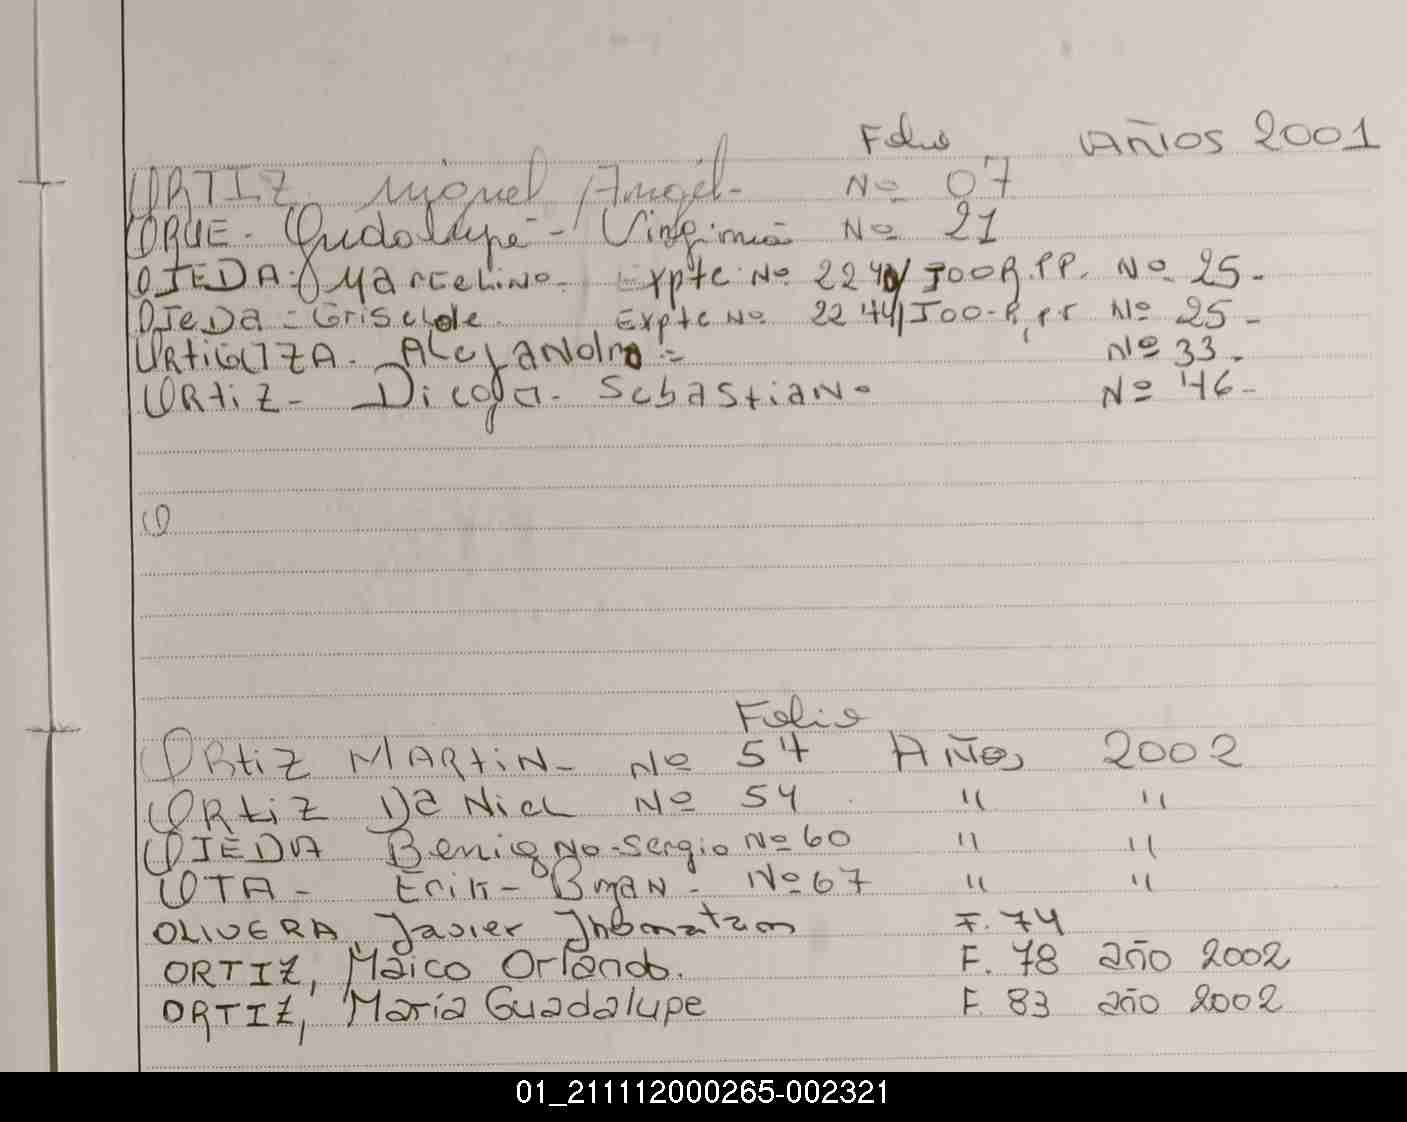 Folio Años 2001
ORTIZ Miguel Angel- Nº 07
ORUE- Guadalupe- Virginia Nº 21
OJEDA- Marcelino- Expte Nº 2240/J00R.PP. Nº 25-
OJEDa- Griselde Expte Nº 2244/J00-P,Pr Nº 25-
URtiGOZA- ALejANdro= Nº 33-
ORtiZ- Diego- SebastiaN- Nº 46-
O
Folio
ORtiZ MARtiN- Nº 54 AÑOs 2002
ORtiZ DaNieL Nº 54 " "
OJEDA BenigNo-Sergio Nº 60 " "
OTA- Erik- BryaN- Nº 67 " "
OLIVERA, Javier Jhonatan F. 74
ORTIZ, Maico Orlando. F. 78 año 2002
ORTIZ, María Guadalupe F. 83 año 2002
01_211112000265-002321